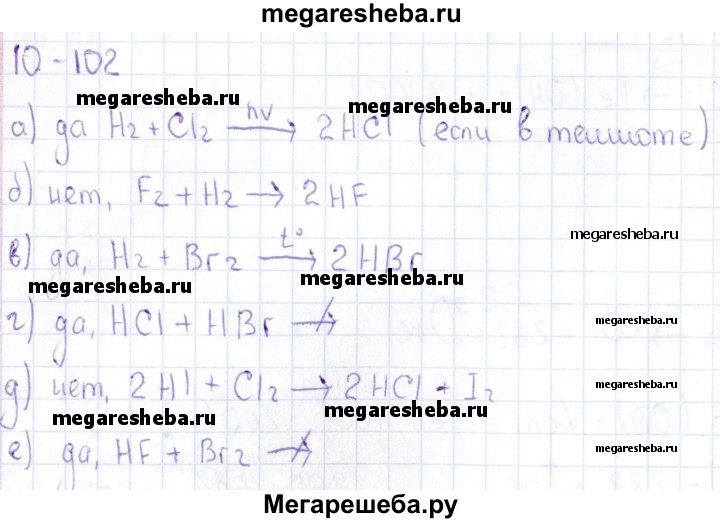 megaresheba.ru
10-102
megaresheba.ru
megaresheba.ru
а) да H₂ + Cl₂ —hν→ 2HCl (если в темноте)
б) нет, F₂ + H₂ → 2HF
megaresheba.ru
в) да, H₂ + Br₂ —t°→ 2HBr
megaresheba.ru
г) да, HCl + HBr ↛
megaresheba.ru
д) нет, 2HI + Cl₂ → 2HCl + I₂
megaresheba.ru
megaresheba.ru
megaresheba.ru
е) да, HF + Br₂ ↛
megaresheba.ru
Мегарешеба.ру